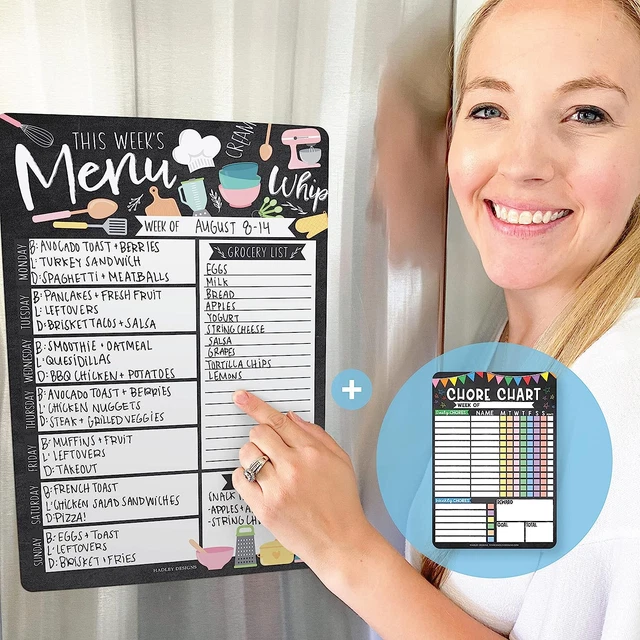 THIS WEEK'S
Menu
CREAM
Whip
WEEK OF AUGUST 8-14
MONDAY
B: AVOCADO TOAST + BERRIES
L: TURKEY SANDWICH
D: SPAGHETTI + MEATBALLS
TUESDAY
B: PANCAKES + FRESH FRUIT
L: LEFTOVERS
D: BRISKET TACOS + SALSA
WEDNESDAY
B: SMOOTHIE + OATMEAL
L: QUESIDILLAS
D: BBQ CHICKEN + POTATOES
THURSDAY
B: AVOCADO TOAST + BERRIES
L: CHICKEN NUGGETS
D: STEAK + GRILLED VEGGIES
FRIDAY
B: MUFFINS + FRUIT
L: LEFTOVERS
D: TAKEOUT
SATURDAY
B: FRENCH TOAST
L: CHICKEN SALAD SANDWICHES
D: PIZZA!
SUNDAY
B: EGGS + TOAST
L: LEFTOVERS
D: BRISKET + FRIES
GROCERY LIST
EGGS
MILK
BREAD
APPLES
YOGURT
STRING CHEESE
SALSA
GRAPES
TORTILLA CHIPS
LEMONS
-APPLES +
-STRING CH
HADLEY DESIGNS
+
CHORE CHART
WEEK OF
Daily CHORES NAME M T W T F S S
Weekly CHORES
REWARD
GOAL TOTAL